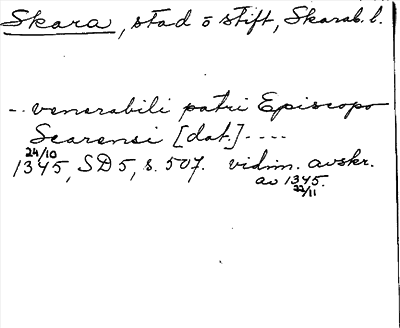 Skara, stad o stift, Skarab. l.
-- venerabili patri Episcopo
Scarensi [dat.] ----
24/10
1345, SD5, s. 507. vidim. avskr.
av 1345.
22/11